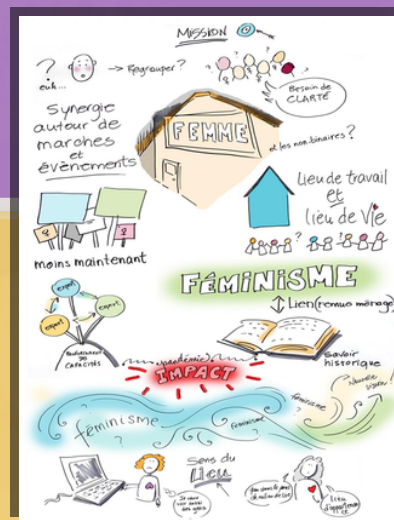 MISSION
?
euh...
→ Regrouper?
Besoin de
CLARTÉ
Synergie
autour de
marches
et
évènements
FEMME
et les non-binaires?
Lieu de travail
et
lieu de vie
?
moins maintenant
FÉMINISME
Lien (remue ménage)
expert
expert
expert
RENFORCEMENT
DE
CAPACITÉS
savoir
historique
(pandémie)
IMPACT
féminisme
?
féminisme
?
féminisme
?
Nouvelle
vision!
Sens du
LIEU